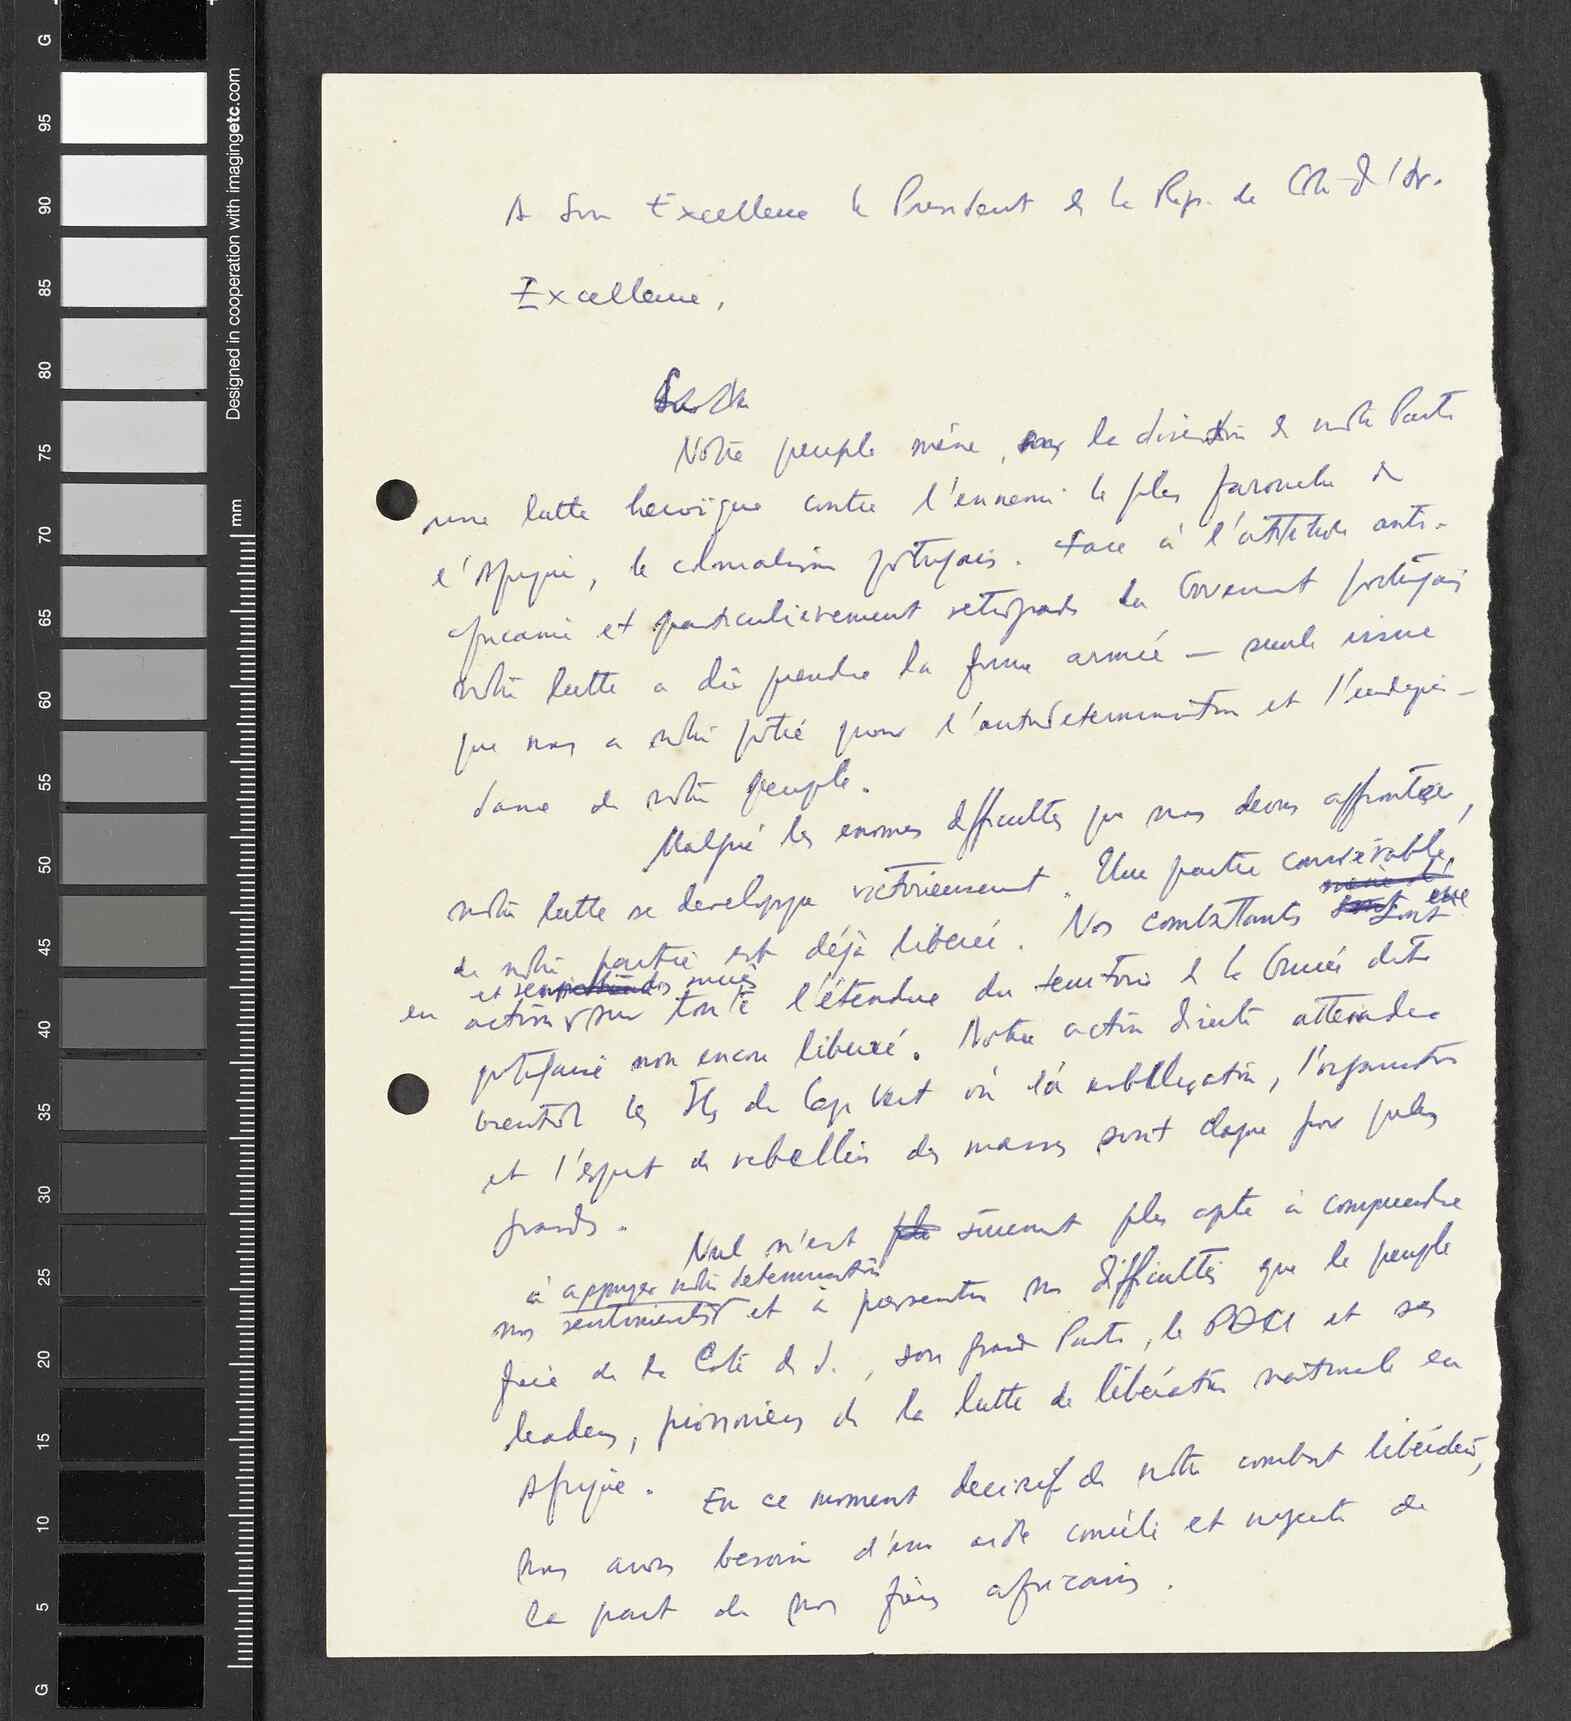 A Son Excellence le President de la Rep. de Côte d'Iv.
Excellence,
Notre peuple mène, sous la direction de notre Parti
une lutte heroïque contre l'ennemi le plus farouche de
l'Afrique, le colonialisme portugais. Face à l'attitude anti-
africaine et particulièrement retrograde du Gouvernement portugais
notre lutte a dû prendre la forme armée — seule issue
que nous a été pour l'autodetermination et l'indepen-
dance de notre peuple.
Malgré les enormes difficultés que nous devons affronter,
notre lutte se developpe victorieusement. Une partie considérable,
de notre patrie est déjà liberée. Nos combattants sont
en action sur toute l'étendue du territoire de la Guinée dite
portugaise non encore liberée. Notre action directe atteindra
bientôt les Îles du Cap Vert où la mobilisation, l'organisation
et l'esprit de rebellion des masses sont chaque jour plus
grands.
Nul n'est sûrement plus apte à comprendre
à appuyer notre determination
nos sentiments et à pressentir nos difficultés que le peuple
frère de la Côte d. I., son grand Parti, le PDCI et ses
leaders, pionniers de la lutte de libération nationale en
Afrique. En ce moment decisif de notre combat libérateur,
nous avons besoin d'une aide concrète et urgente de
la part de nos frères africains.
G
95
90
85
80
75
70
65
60
55
50
45
40
35
30
25
20
15
10
5
G
Designed in cooperation with imagingetc.com
mm